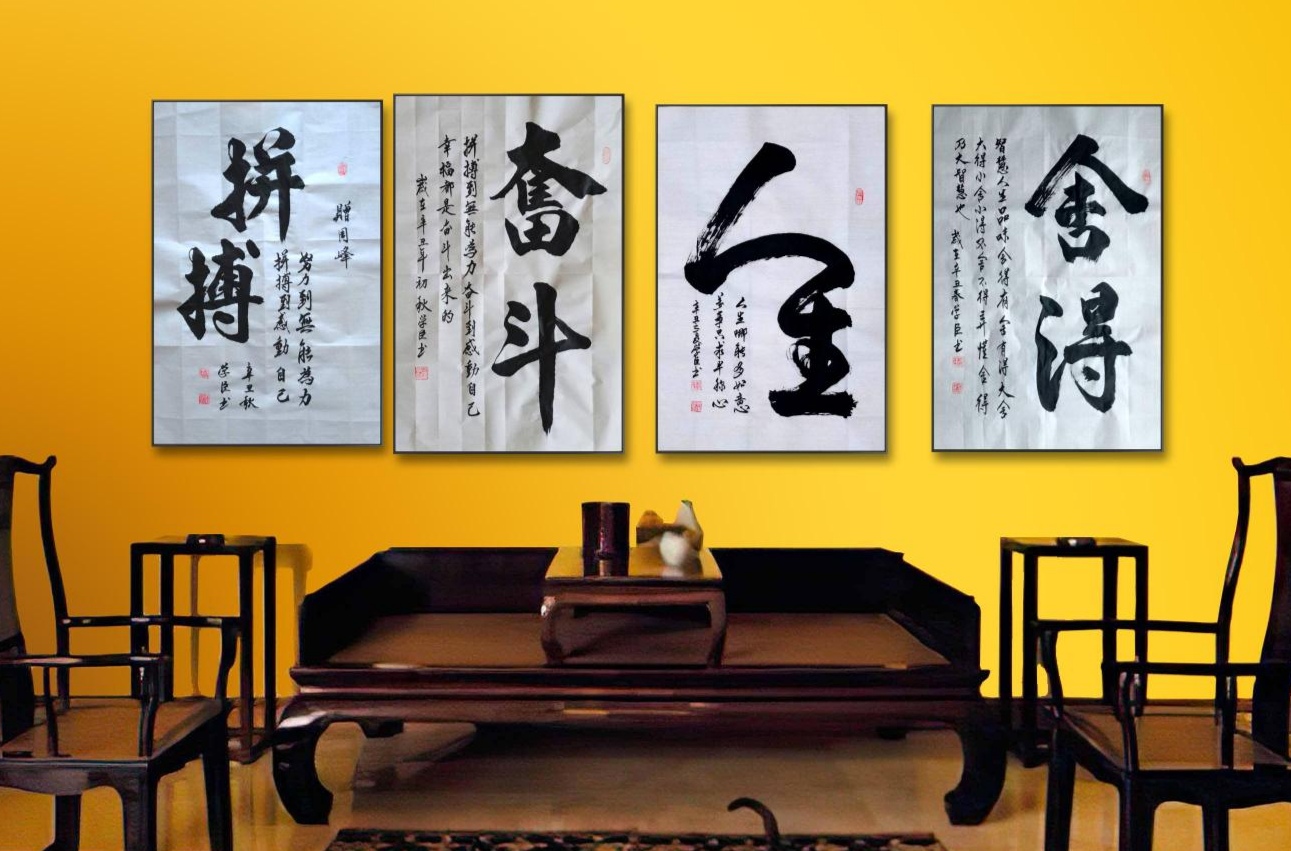 贈周峰
拼搏
努力到無能為力
拼搏到感動自己
辛丑秋
学臣书
奮斗
拼搏到無能為力奋斗到感動自己
幸福都是奋斗出来的
歲在辛丑年初秋学臣书
人生
人生哪能多如意
萬事只求半称心
舍得
智慧人生品味舍得有舍有得大舍
大得小舍小得不舍不得弄懂舍得
乃大智慧也 歲在辛丑春学臣书